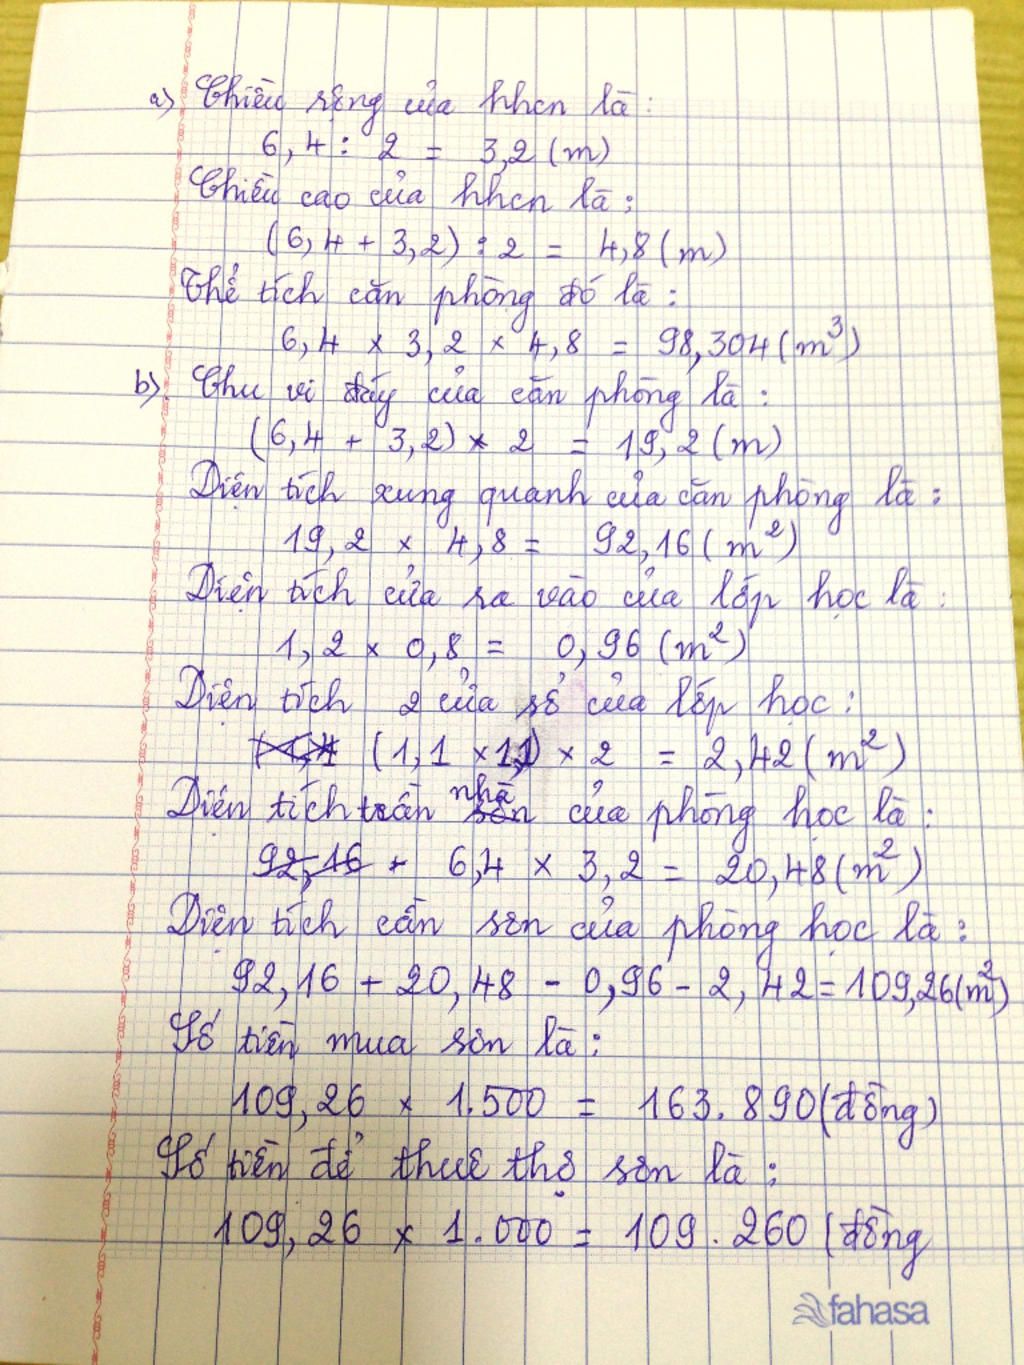 a) Chiều rộng của hhcn là:
6,4 : 2 = 3,2 (m)
Chiều cao của hhcn là:
(6,4 + 3,2) : 2 = 4,8 (m)
Thể tích căn phòng đó là:
6,4 x 3,2 x 4,8 = 98,304 (m³)
b) Chu vi đáy của căn phòng là:
(6,4 + 3,2) x 2 = 19,2 (m)
Diện tích xung quanh của căn phòng là:
19,2 x 4,8 = 92,16 (m²)
Diện tích cửa ra vào của lớp học là:
1,2 x 0,8 = 0,96 (m²)
Diện tích 2 cửa sổ của lớp học:
(1,1 x 1,1) x 2 = 2,42 (m²)
Diện tích trần nhà của phòng học là:
92,16 + 6,4 x 3,2 = 20,48 (m²)
Diện tích cần sơn của phòng học là:
92,16 + 20,48 - 0,96 - 2,42 = 109,26 (m²)
Số tiền mua sơn là:
109,26 x 1.500 = 163.890 (đồng)
Số tiền để thuê thợ sơn là:
109,26 x 1.000 = 109.260 (đồng
fahasa